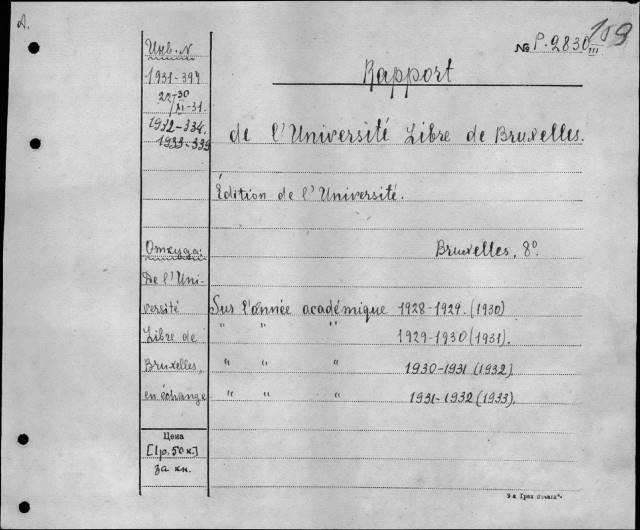 А.
№ Р. 2830 III
109
Инв. №
1931-397
Rapport
1932-334.
1933-339
de l'Université Libre de Bruxelles.
Édition de l'Université.
Откуда:
Bruxelles, 8º
De l'Uni-
versité
Sur l'année académique 1928-1929. (1930)
Libre de
" " " 1929-1930 (1931).
Bruxelles,
" " " 1930-1931 (1932)
en échange
" " " 1931-1932 (1933).
Цена
[1 р. 50 к.]
за кн.